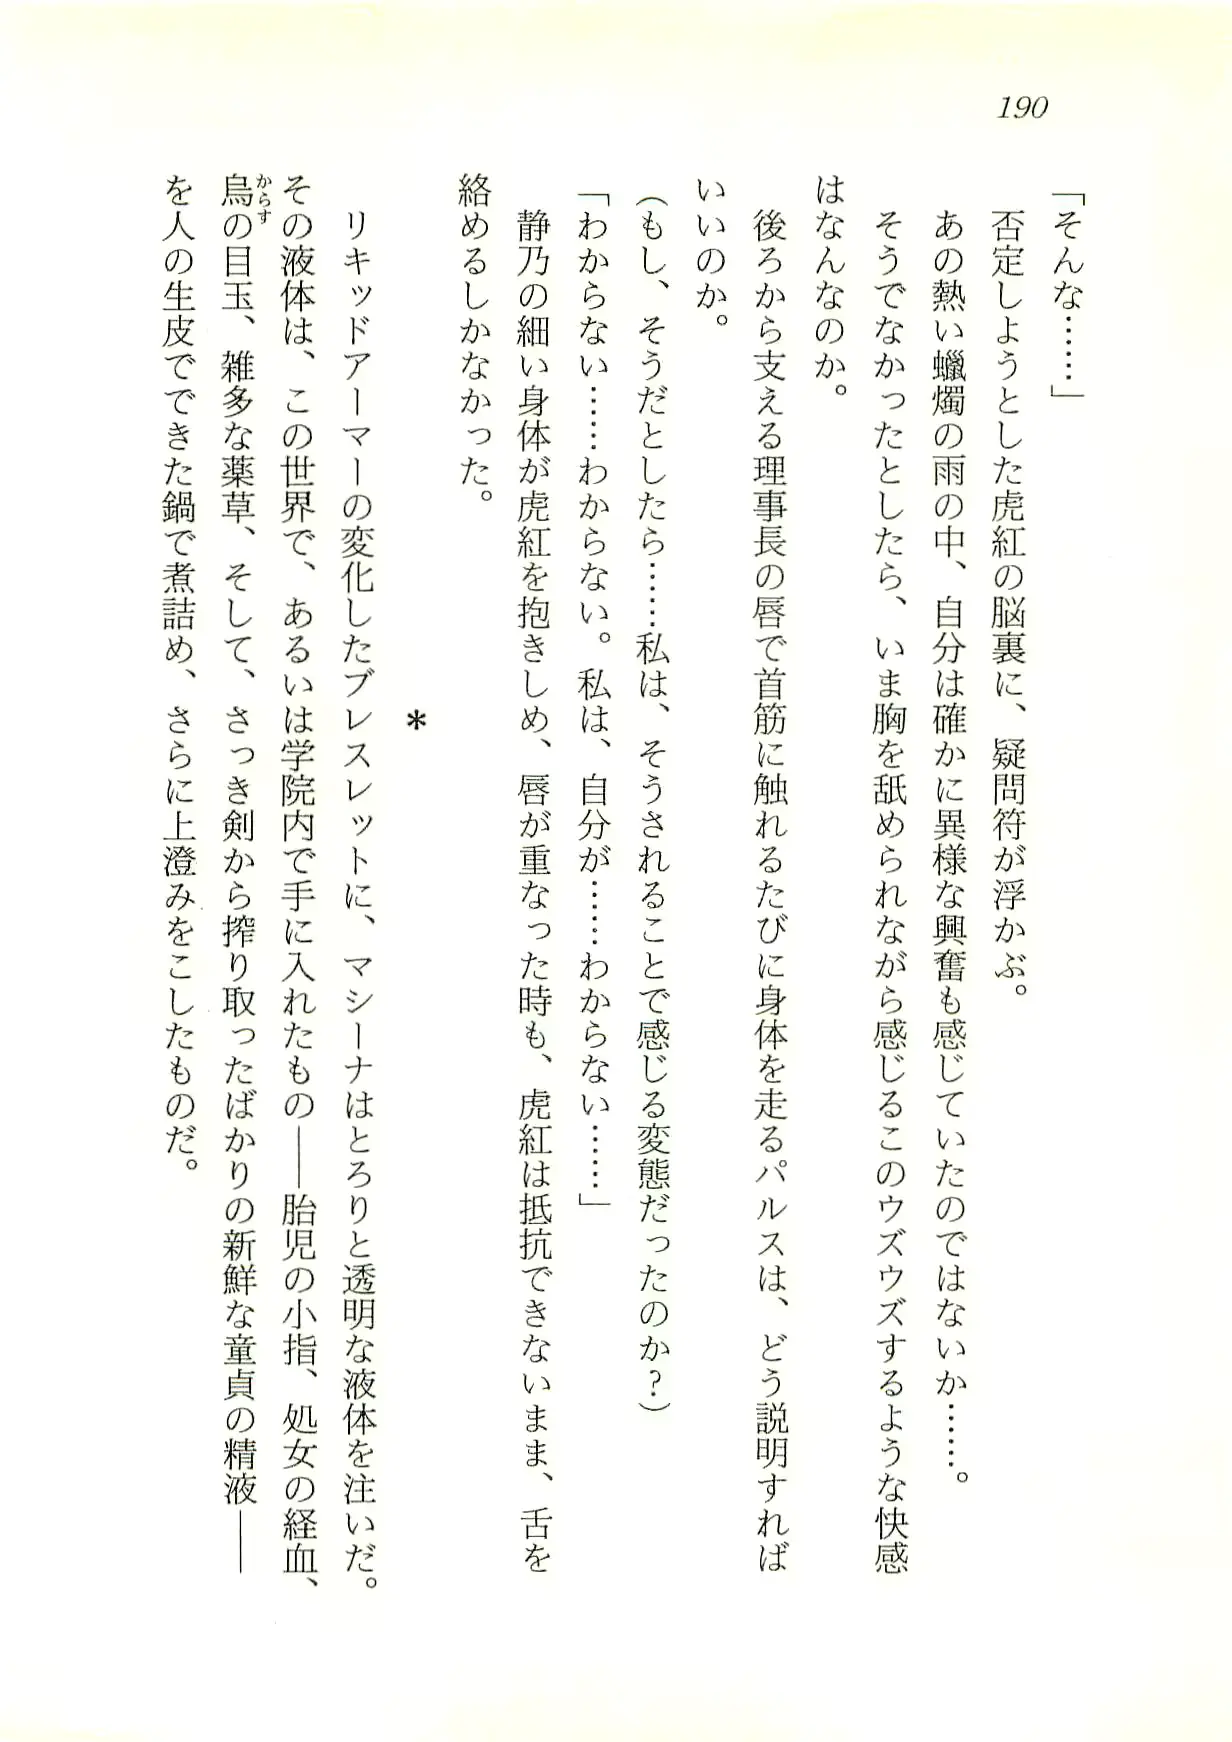 190
「そんな……」
否定しようとした虎紅の脳裏に、疑問符が浮かぶ。
あの熱い蠟燭の雨の中、自分は確かに異様な興奮も感じていたのではないか……。
そうでなかったとしたら、いま胸を舐められながら感じるこのウズウズするような快感
はなんなのか。
後ろから支える理事長の唇で首筋に触れるたびに身体を走るパルスは、どう説明すれば
いいのか。
（もし、そうだとしたら……私は、そうされることで感じる変態だったのか？）
「わからない……わからない。私は、自分が……わからない……」
静乃の細い身体が虎紅を抱きしめ、唇が重なった時も、虎紅は抵抗できないまま、舌を
絡めるしかなかった。
＊
リキッドアーマーの変化したブレスレットに、マシーナはとろりと透明な液体を注いだ。
その液体は、この世界で、あるいは学院内で手に入れたもの――胎児の小指、処女の経血、
烏からすの目玉、雑多な薬草、そして、さっき剣から搾り取ったばかりの新鮮な童貞の精液――
を人の生皮でできた鍋で煮詰め、さらに上澄みをこしたものだ。